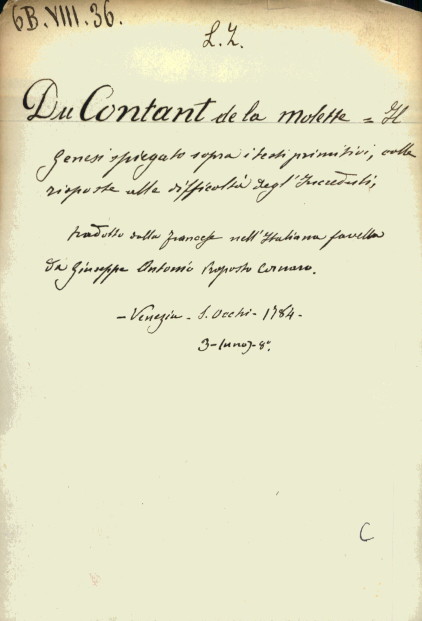 6B.VIII.36.
L.Z.
Du Contant de la Molette = Il
Genesi spiegato sopra i testi primitivi, colle
risposte alle difficoltà degl'Increduli,
tradotto dalla francese nell'Italiana favella
da Giuseppe Antonio Proposto Cornaro.
- Venezia - S. Occhi - 1784 -
3 - (uno) - 8°.
C